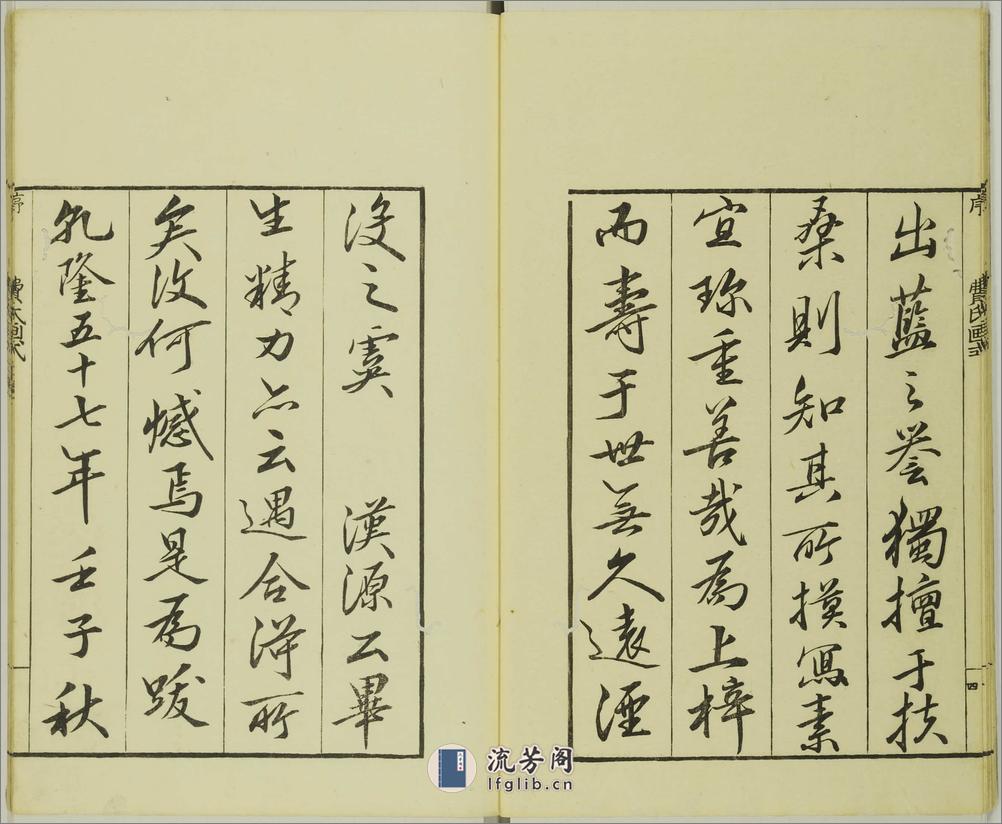 出藍之譽獨擅于扶
桑則知其所摸寫素
宜珍重善哉為上梓
而壽于世無久遠湮
沒之虞 漢源公畢
生精力亦云遇合得所
矣汝何憾焉是為跋
乾隆五十七年壬子秋
序
費氏画式
四
序
費氏画式
流芳阁
lfglib.cn